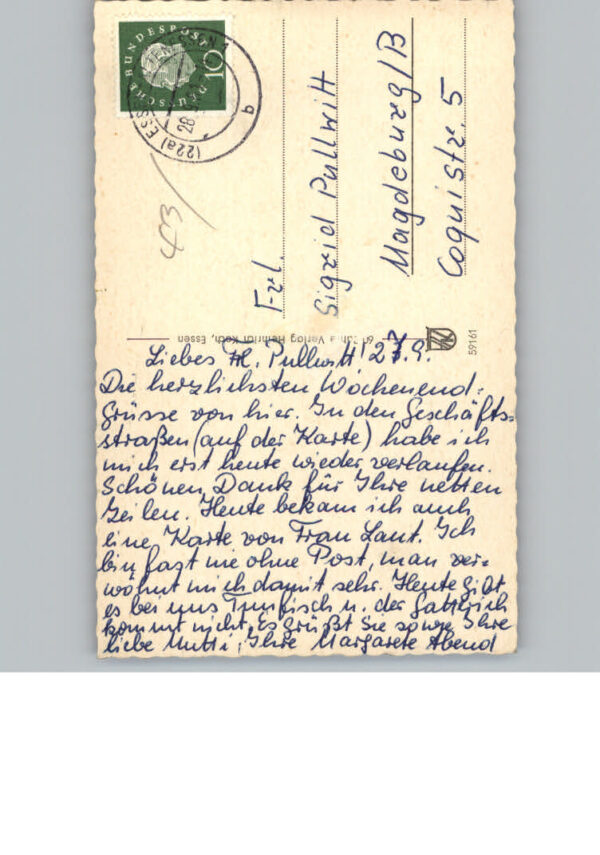 DEUTSCHE BUNDESPOST
10
(22a) ESSEN 1
28.
b
43
Frl.
Sigrid Pullwitt
Magdeburg/B
Coquistr. 5
Verlag Heinrich Koch, Essen
59161
Liebes Frl. Pullwitt! 27.9.
Die herzlichsten Wochenend-
grüsse von hier. In den Geschäfts-
straßen (auf der Karte) habe ich
mich erst heute wieder verlaufen.
Schönen Dank für Ihre netten
Zeilen. Heute bekam ich auch
eine Karte von Frau Laut. Ich
bin fast nie ohne Post, man ver-
wöhnt mich damit sehr. Heute gibt
es bei uns u. der
kommt nicht. Es grüßt Sie sowie Ihre
liebe Mutti, Ihre Margarete Abend